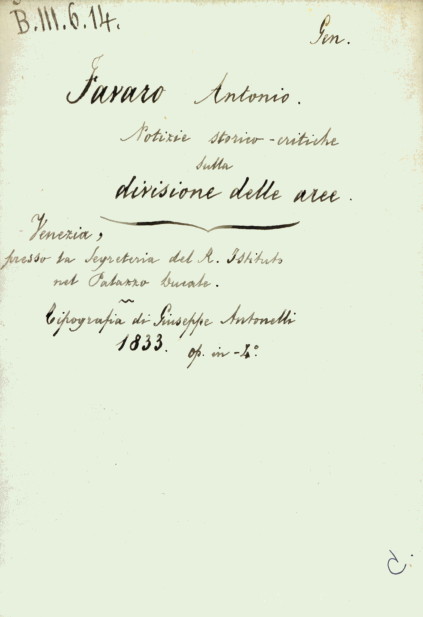 B.III.6.14.
Gen.
Favaro Antonio.
Notizie storico-critiche
sulla
divisione delle aree.
Venezia,
presso la Segreteria del R. Istituto
nel Palazzo Ducale.
Tipografia di Giuseppe Antonelli
1833. op. in-4°.
C.